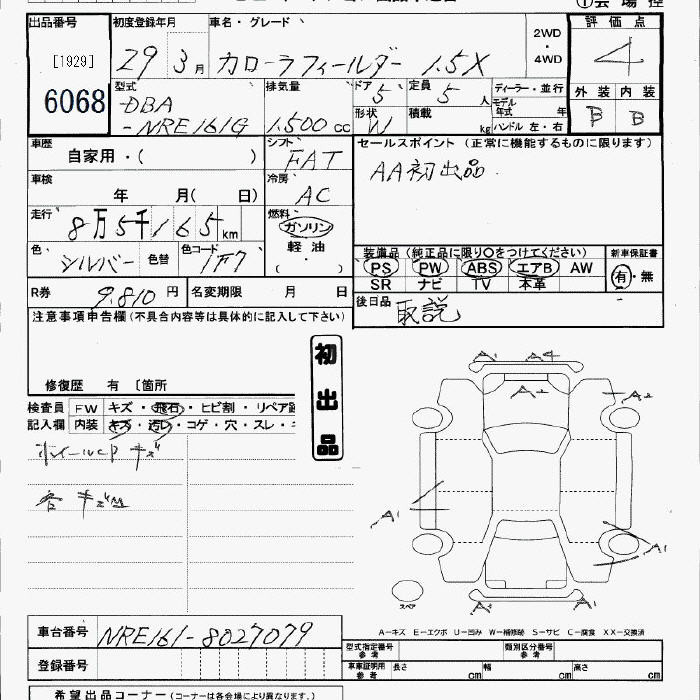 ① 会 場 控
出品番号 初度登録年月 車名・グレード 2WD・4WD 評価点
[1929] 29 3月 カローラフィールダー 1.5X 4
6068 型式 排気量 ドア 定員 ディーラー・並行 外装 内装
DBA 5 5人 モデル年式 年 B B
-NRE161G 1.500cc 形状 W 積載 kg ハンドル 左・右
車歴 シフト セールスポイント (正常に機能するものに限ります)
自家用・( ) FAT AA初出品
車検 冷房
年 月( 日) AC
走行 燃料
8万5千165km ガソリン
色 色替 色コード 軽油 装備品 (純正品に限り○をつけてください) 新車保証書
シルバー 1F7 ・( ) PS PW ABS エアB AW 有・無
SR ナビ TV 本革
R券 9.810円 名変期限 月 日 後日品 取説
注意事項申告欄(不具合内容等は具体的に記入して下さい)
初出品
修復歴 有 〔箇所
検査員 FW キズ・飛石・ヒビ割・リペア跡
記入欄 内装 キズ・汚レ・コゲ・穴・スレ・キ
ホイールCP キズ
各キズ凹
A1 A4
A2 A2
A1 A1
スペア A1 A1
A-キズ E-エクボ U-凹み W-補修跡 S-サビ C-腐食 XX-交換済
車台番号 NRE161-8027079
型式指定番号 参考 類別区分番号 参考
登録番号 車車証明用 参考 長さ cm 幅 cm 高さ cm
希望出品コーナー (コーナーは各会場により異なります。)